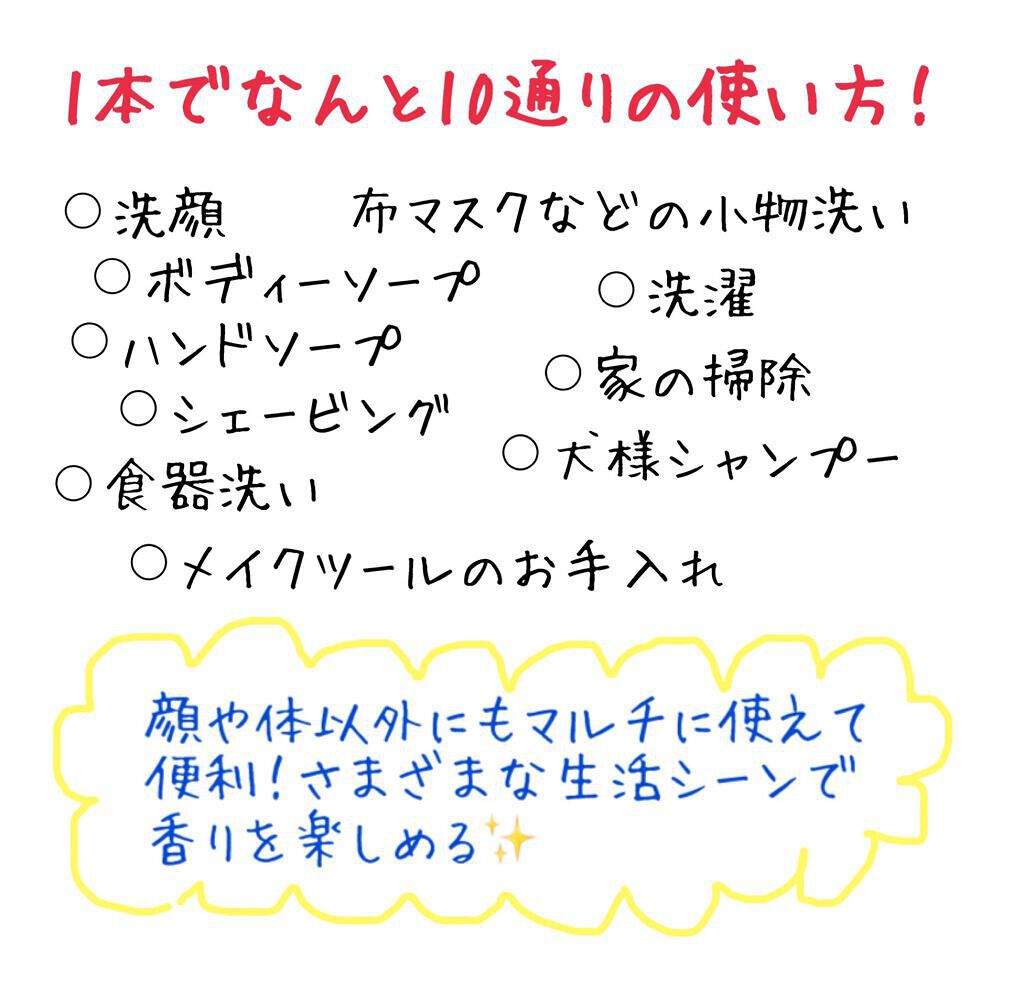 1本でなんと10通りの使い方!
○洗顔
布マスクなどの小物洗い
○ボディーソープ
○洗濯
○ハンドソープ
○家の掃除
○シェービング
○犬様シャンプー
○食器洗い
○メイクツールのお手入れ
顔や体以外にもマルチに使えて
便利!さまざまな生活シーンで
香りを楽しめる✨